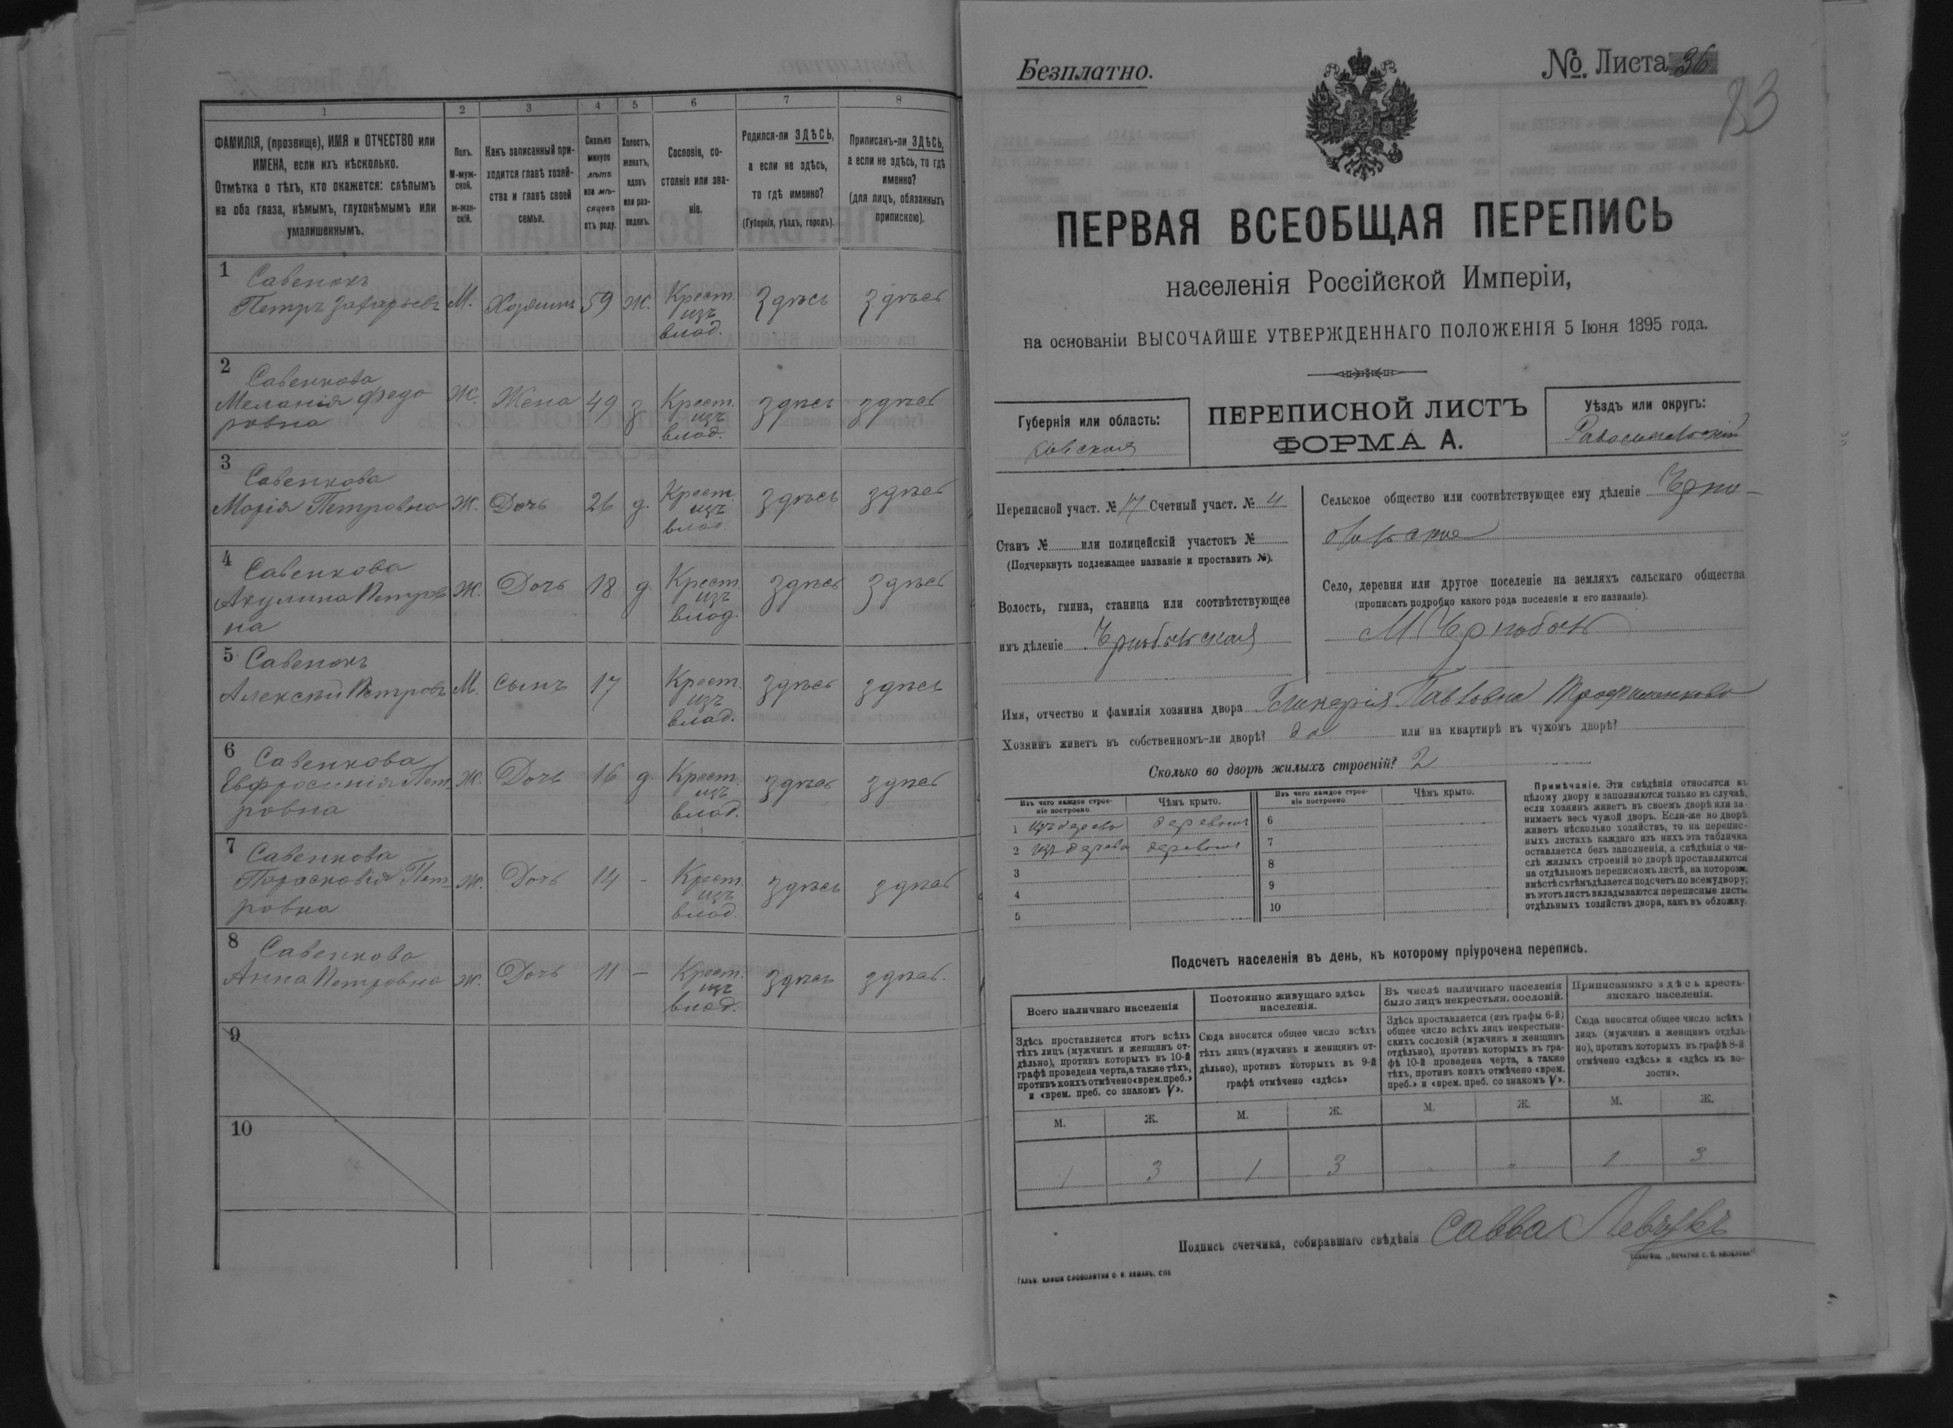 1 2 3 4 5 6 7 8
ФАМИЛІЯ, (прозвище), ИМЯ и ОТЧЕСТВО или
ИМЕНА, если ихъ нѣсколько.
Отмѣтка о тѣхъ, кто окажется: слѣпымъ
на оба глаза, нѣмымъ, глухонѣмымъ или
умалишеннымъ.
Полъ.
М-муж-
ской.
ж-жен-
скій.
Какъ записанный при-
ходится главѣ хозяй-
ства и главѣ своей
семьи.
Сколько
минуло
лѣтъ
или мѣ-
сяцевъ
отъ роду.
Холостъ,
женатъ,
вдовъ
или раз-
веденъ.
Сословіе, со-
стояніе или зва-
ніе.
Родился-ли ЗДѢСЬ,
а если не здѣсь,
то гдѣ именно?
(Губернія, уѣздъ, городъ).
Приписанъ-ли ЗДѢСЬ,
а если не здѣсь, то гдѣ
именно?
(для лицъ, обязанныхъ
припискою).
1 Савенокъ
Петръ Захарьевъ М. Хозяинъ 59 Ж. Крест. изъ влад. здѣсь здѣсь
2 Савенкова
Меланія Федо
ровна Ж. Жена 49 З Крест. изъ влад. здѣсь здѣсь
3 Савенкова
Марія Петровна Ж. Дочь 26 д. Крест. изъ влад. здѣсь здѣсь
4 Савенкова
Акулина Петров
на Ж. Дочь 18 д. Крест. изъ влад. здѣсь здѣсь
5 Савенокъ
Алексѣй Петровъ М. Сынъ 17 Крест. изъ влад. здѣсь здѣсь
6 Савенкова
Евфросинія Пет
ровна Ж. Дочь 16 д. Крест. изъ влад. здѣсь здѣсь
7 Савенкова
Парасковія Пет
ровна Ж. Дочь 14 - Крест. изъ влад. здѣсь здѣсь
8 Савенкова
Анна Петровна Ж. Дочь 11 - Крест. изъ влад. здѣсь здѣсь.
9
10
Безплатно.
№ Листа 36
83
ПЕРВАЯ ВСЕОБЩАЯ ПЕРЕПИСЬ
населенія Россійской Имперіи,
на основаніи ВЫСОЧАЙШЕ УТВЕРЖДЕННАГО ПОЛОЖЕНІЯ 5 Іюня 1895 года.
Губернія или область:
ПЕРЕПИСНОЙ ЛИСТЪ
ФОРМА А.
Уѣздъ или округъ:
Переписной участ. № 17 Счетный участ. № 4
Станъ № или полицейскій участокъ №
(Подчеркнуть подлежащее названіе и проставить №).
Волость, гмина, станица или соотвѣтствующее
имъ дѣленіе Чернобыльская
Сельское общество или соотвѣтствующее ему дѣленіе Черно-
быльское
Село, деревня или другое поселеніе на земляхъ сельскаго общества
(прописать подробно какого рода поселеніе и его названіе).
М Чернобыль
Имя, отчество и фамилія хозяина двора Гликерія Павловна Трофименкова
Хозяинъ живетъ въ собственномъ-ли дворѣ? да или на квартирѣ въ чужомъ дворѣ?
Сколько во дворѣ жилыхъ строеній? 2
Изъ чего каждое строе-
ніе построено
Чѣмъ крыто.
Изъ чего каждое строе-
ніе построено
Чѣмъ крыто.
1 изъ дерева деревомъ 6
2 изъ дерева деревомъ 7
3 8
4 9
5 10
Примѣчаніе. Эти свѣдѣнія относятся къ
цѣлому двору и заполняются только въ случаѣ,
если хозяинъ живетъ въ своемъ дворѣ или за-
нимаетъ весь чужой дворъ. Если-же во дворѣ
живетъ нѣсколько хозяйствъ, то на перепис-
ныхъ листахъ каждаго изъ нихъ эта табличка
оставляется безъ заполненія, а свѣдѣнія о чи-
слѣ жилыхъ строеній во дворѣ проставляются
на отдѣльномъ переписномъ листѣ, на которомъ
вмѣстѣ съ тѣмъ дѣлается подсчетъ по всему двору;
въ этотъ листъ вкладываются переписные листы
отдѣльныхъ хозяйствъ двора, какъ въ обложку.
Подсчетъ населенія въ день, къ которому пріурочена перепись.
Всего наличнаго населенія
Здѣсь проставляется итогъ всѣхъ
тѣхъ лицъ (мужчинъ и женщинъ от-
дѣльно), противъ которыхъ въ 10-й
графѣ проведена черта, а также тѣхъ,
противъ коихъ отмѣчено «врем. преб.»
и «врем. преб. со знакомъ V».
Постоянно живущаго здѣсь
населенія.
Сюда вносится общее число всѣхъ
тѣхъ лицъ (мужчинъ и женщинъ от-
дѣльно), противъ которыхъ въ 9-й
графѣ отмѣчено «здѣсь»
Въ числѣ наличнаго населенія
было лицъ некрестьян. сословій.
Здѣсь проставляется (изъ графы 6-й)
общее число всѣхъ лицъ некрестьян-
скихъ сословій (мужчинъ и женщинъ
отдѣльно), противъ которыхъ въ гра-
фѣ 10-й проведена черта, а также
тѣхъ, противъ коихъ отмѣчено «врем.
преб.» и «врем. преб. со знакомъ V».
Приписаннаго здѣсь кресть-
янскаго населенія.
Сюда вносится общее число всѣхъ
лицъ (мужчинъ и женщинъ отдѣль-
но), противъ которыхъ въ графѣ 8-й
отмѣчено «здѣсь» и «здѣсь въ во-
лости».
М. Ж. М. Ж. М. Ж. М. Ж.
1 3 1 3 " " 1 3
Подпись счетчика, собиравшаго свѣдѣнія Савва